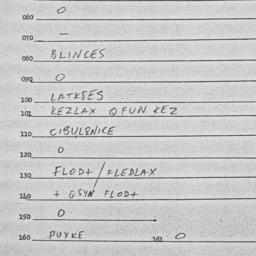 060 O
070 —
080 BLINCES
090 O
100 LATKSES
101 KEZLAX QFUN KEZ
110 CIBULGNICE
120 O
130 FLOD+ / FLEDLAX
140 + GSYN FLOD+
150 O
160 PUYKE 161 O